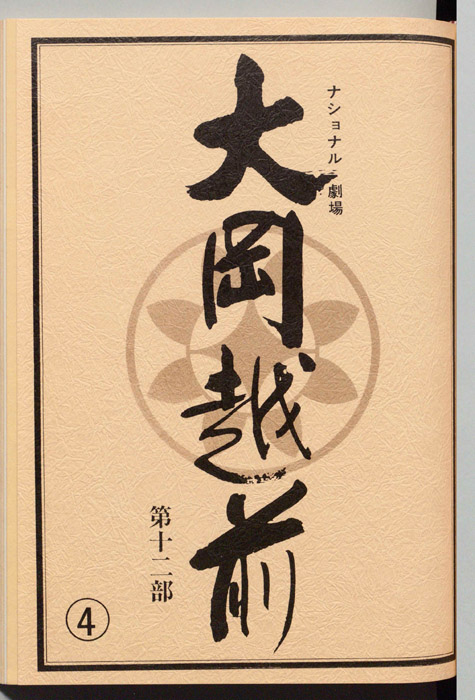 ナショナル劇場
大岡越前
第十二部
④